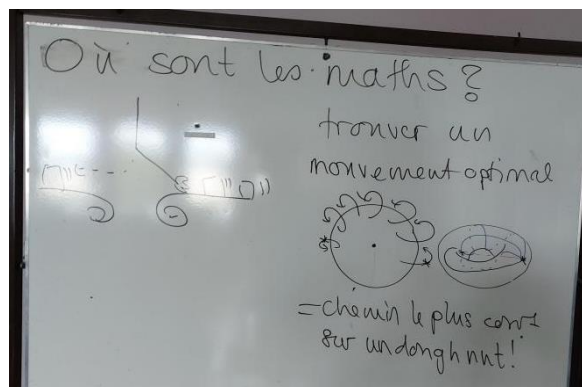 Où sont les maths ?
trouver un
mouvement optimal
= chemin le plus court
sur un doughnut!